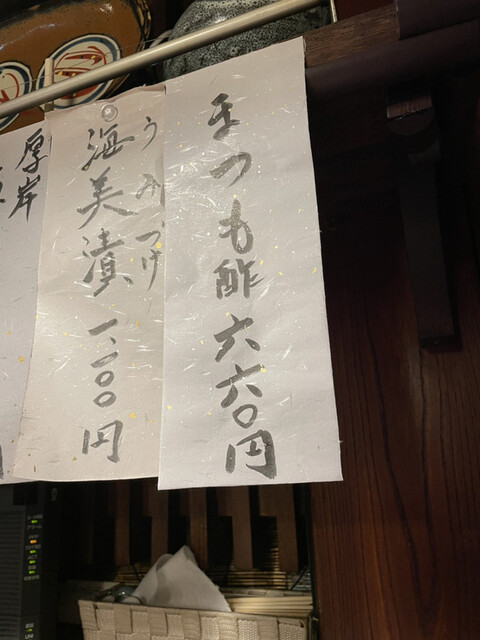 まつも酢 六六〇円
うみづけ
海美漬 一、一〇〇円
厚岸